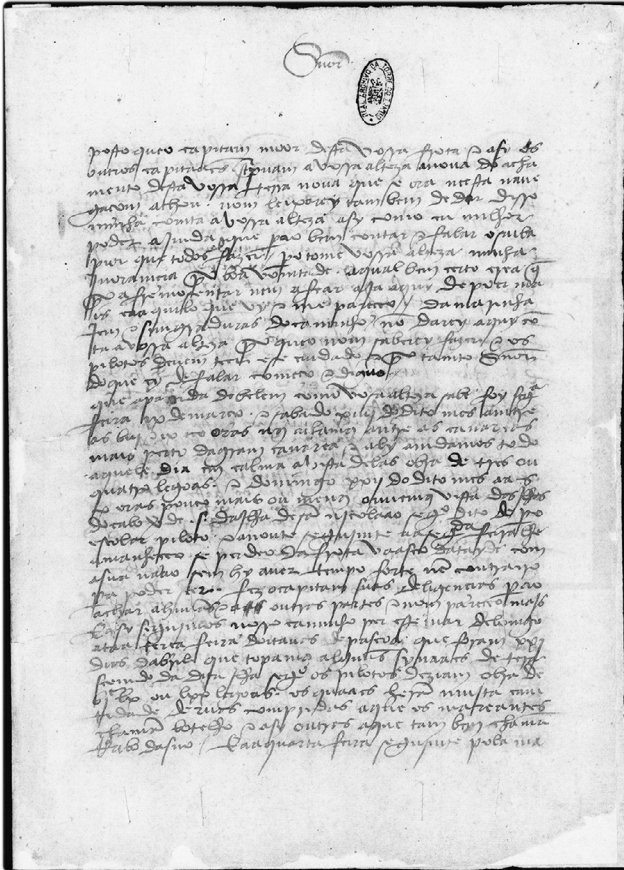 Snõr
posto que o capitam moor desta vossa frota e asy os
outros capitaães screpuam a vossa alteza a noua do acha
mento desta vossa terra noua que se ora neesta naue
gaçom achou. nom leixarey tambem de dar disso
minha comta a vossa alteza asy como eu milhor
poder ajmda que pera o bem contar e falar o saiba
pior que todos fazer. pero tome vossa alteza minha
jnoramçia por boa vomtade. a qual bem çerto crea q̃
por afremosentar nem afear aja aquy de poer ma
is ca aquilo que vy e me pareçeo. / da marinha
jem e simgraduras do caminho nõ darey aquy cõ
ta a vossa alteza por que o nom saberey fazer e os
pilotos deuem teer ese cuidado e por tanto Snõr
do que ey de falar começo e diguo
que a partida de belem como vosa alteza sabe foy segª
feira ix de março. e sabado xiiij do dito mes amtre
as biij e ix oras nos achamos amtre as canareas
mais perto da gram canarea e aly amdamos todo
aquele dia em calma a vista delas obra de tres ou
quatro legoas. e domingo xxij do dito mes aas
x oras pouco mais ou menos ouuemos vista das jlhas
do cabo verde .s. da jlha de sã njcolaao segº dito de pº
escolar piloto. e a noute segujmte aa segª feira lhe
amanheçeo se perdeo da frota vaasco datayde com
a sua naao sem hy auer tempo forte nẽ contrairo
pera poder seer. fez o capitam suas deligençias pera o
achar a huũas e a outras partes e nom pareçeo majs
E asy segujmos nosso caminho per este mar de lomgo
ataa terça feira doitauas de pascoa que foram xxj
dias dabril que topamos alguũs synaaes de terra
seemdo da dita jlha segº os pilotos deziam obra de
bjc lx ou lxx legoas. os quaaes herã mujta cam
tidade deruas compridas a que os mareantes
chamã botelho e asy outras a que tam bem chamã
rrabo dasno. / E aa quarta feira segujmte pola ma